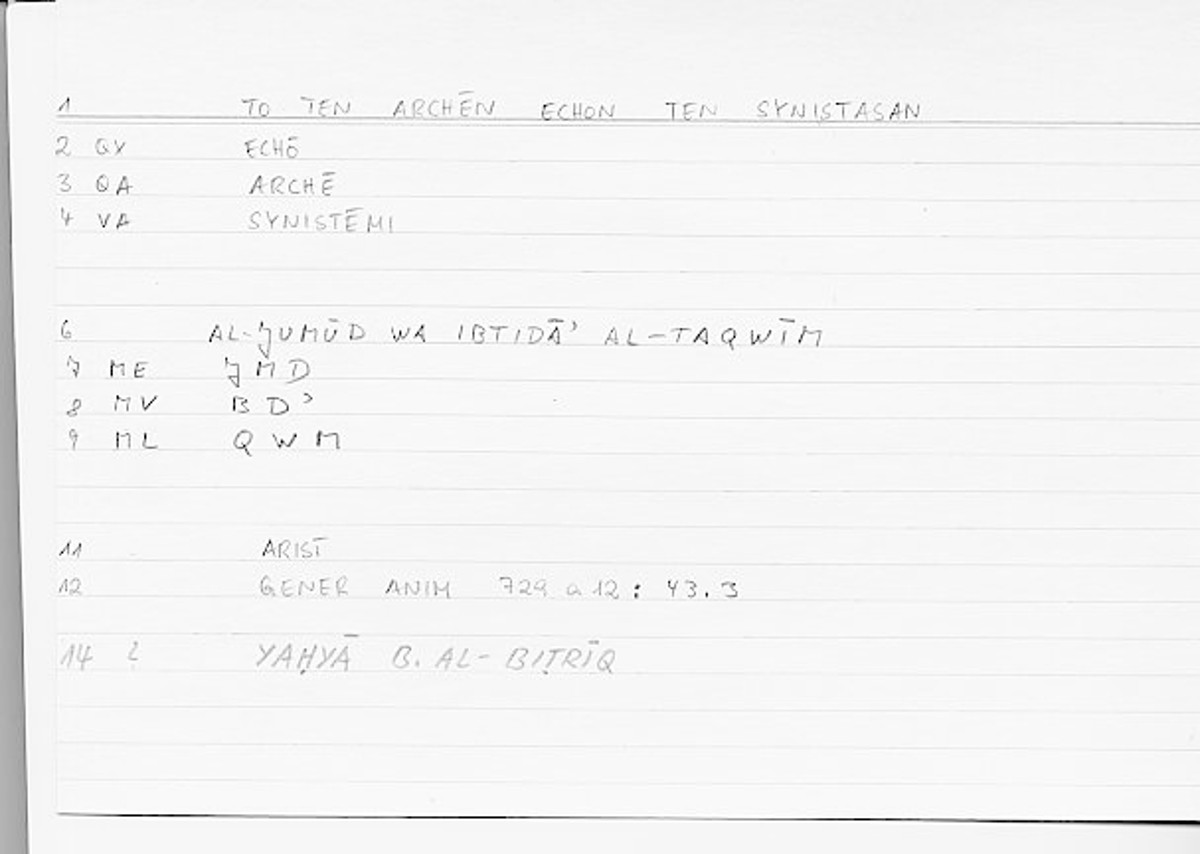 1 TO TEN ARCHĒN ECHON TEN SYNISTASAN
2 QX ECHŌ
3 QA ARCHĒ
4 VA SYNISTĒMI
6 AL-JUMŪD WA IBTIDĀʾ AL-TAQWĪM
7 ME JMD
8 MV BDʾ
9 ML QWM
11 ARIST
12 GENER ANIM 729 a 12 : 43.3
14 YAḤYĀ B. AL-BIṬRĪQ